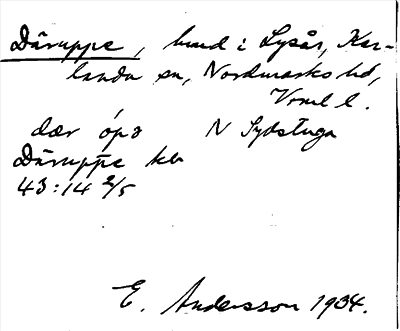 Däruppe, hmd i Lysås, Kar-
landa sn, Nordmarks hd,
Vrml l.
dær ópə N Sydstuga
Däruppe kb
43:14 2/5
E. Andersson 1934.